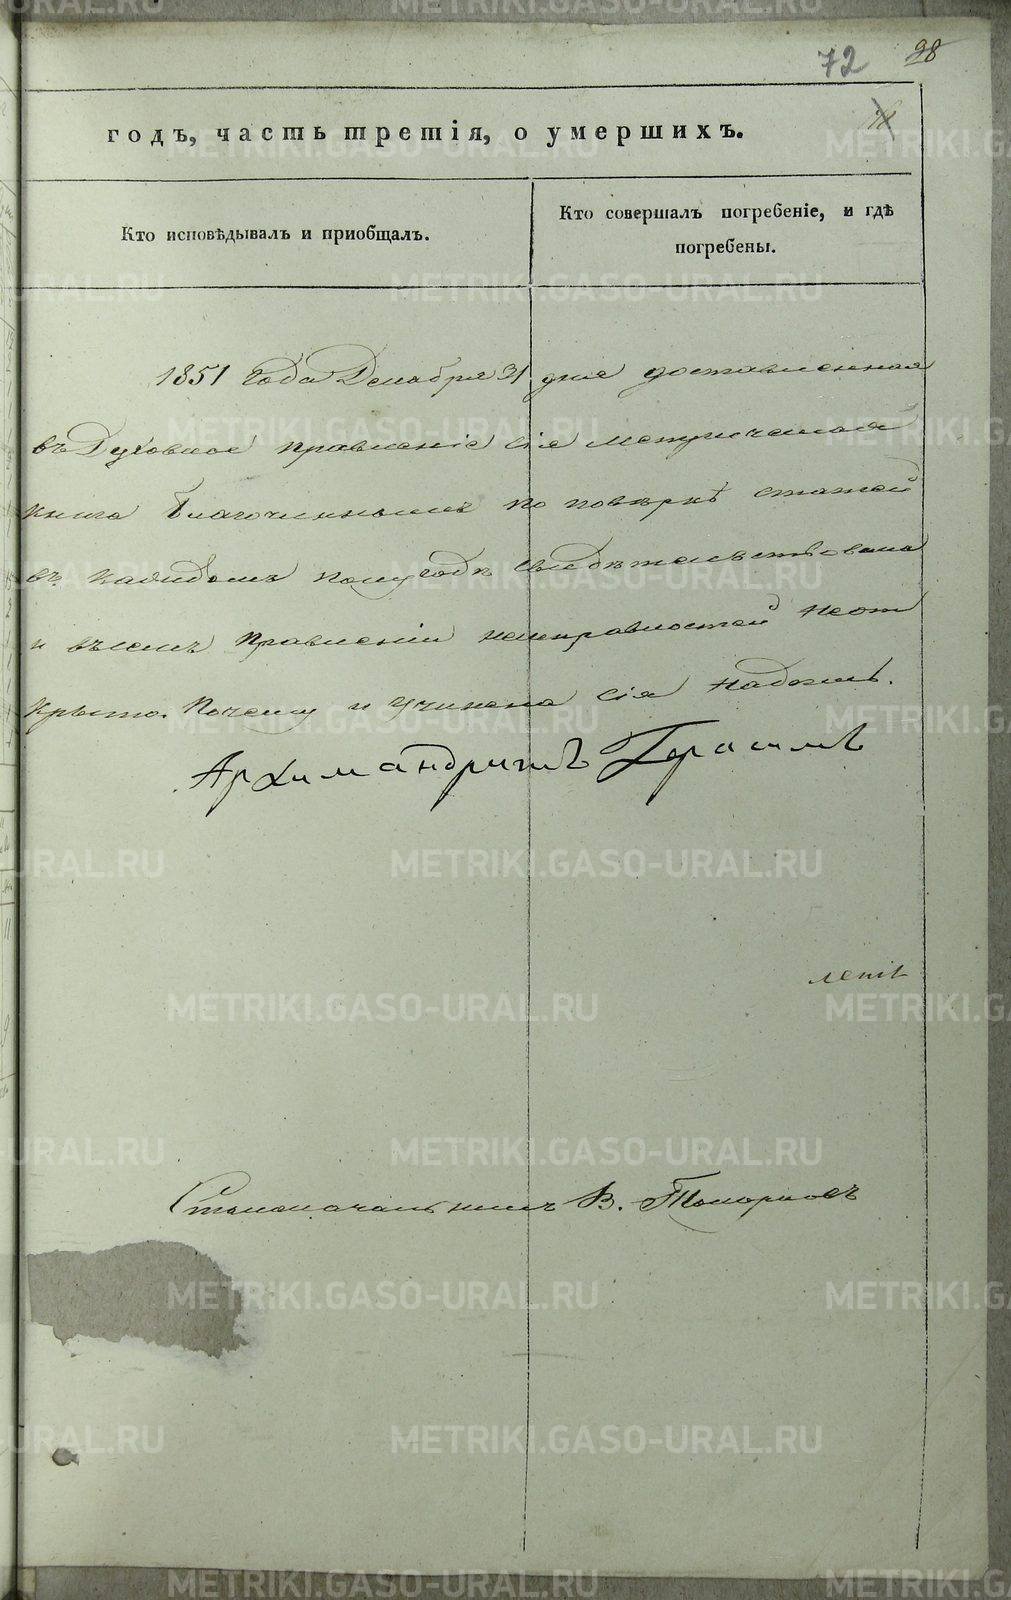 72 98
годъ, часть третія, о умершихъ.
Кто исповѣдывалъ и приобщалъ.
Кто совершалъ погребеніе, и гдѣ
погребены.
1851 года Декабря 31 дня доставленная
въ Духовное правленіе сія метрическая
книга Благочиннымъ по повѣркѣ статей
въ каждомъ полугодѣ свидѣтельствована
и въ семъ Правленіи неисправностей неот
крыто. Почему и учинена сія надпись.
Архимандритъ Герасимъ
леніѣ
Столоначальникъ В.
METRIKI.GASO-URAL.RU